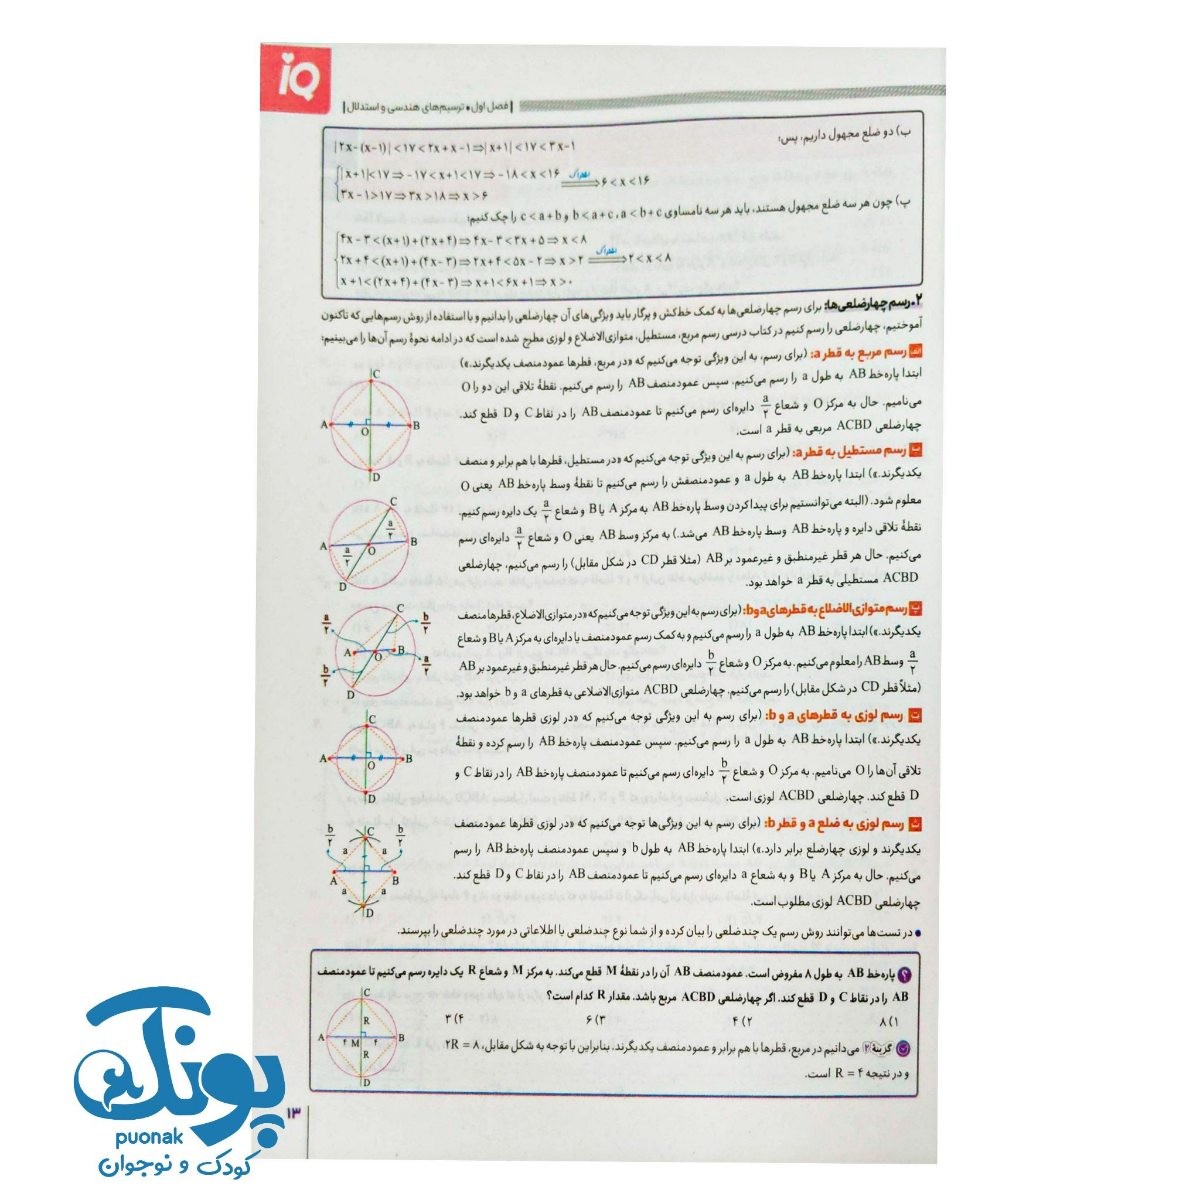 iQ
فصل اول • ترسیم‌های هندسی و استدلال
ب) دو ضلع مجهول داریم، پس:
|۲x-(x-۱)|<۱۷<۲x+x-۱⇒|x+۱|<۱۷<۳x-۱
|x+۱|<۱۷⇒-۱۷<x+۱<۱۷⇒-۱۸<x<۱۶ اشتراک ⇒۶<x<۱۶
۳x-۱>۱۷⇒۳x>۱۸⇒x>۶
پ) چون هر سه ضلع مجهول هستند، باید هر سه نامساوی a<b+c، b<a+c و c<a+b را چک کنیم:
۴x-۳<(x+۱)+(۲x+۴)⇒۴x-۳<۳x+۵⇒x<۸
۲x+۴<(x+۱)+(۴x-۳)⇒۲x+۴<۵x-۲⇒x>۲ اشتراک ⇒۲<x<۸
x+۱<(۲x+۴)+(۴x-۳)⇒x+۱<۶x+۱⇒x>۰
۲.رسم چهارضلعی‌ها: برای رسم چهارضلعی‌ها به کمک خط‌کش و پرگار باید ویژگی‌های آن چهارضلعی را بدانیم و با استفاده از روش رسم‌هایی که تاکنون
آموختیم، چهارضلعی را رسم کنیم در کتاب درسی رسم مربع، مستطیل، متوازی‌الاضلاع و لوزی مطرح شده است که در ادامه نحوهٔ رسم آن‌ها را می‌بینیم:
الف رسم مربع به قطر a: (برای رسم، به این ویژگی توجه می‌کنیم که «در مربع، قطرها عمودمنصف یکدیگرند.»)
ابتدا پاره‌خط AB به طول a را رسم می‌کنیم. سپس عمودمنصف AB را رسم می‌کنیم. نقطهٔ تلاقی این دو را O
می‌نامیم. حال به مرکز O و شعاع a/۲ دایره‌ای رسم می‌کنیم تا عمودمنصف AB را در نقاط C و D قطع کند.
چهارضلعی ACBD مربعی به قطر a است.
C
A O B
D
ب رسم مستطیل به قطر a: (برای رسم به این ویژگی توجه می‌کنیم که «در مستطیل، قطرها با هم برابر و منصف
یکدیگرند.») ابتدا پاره‌خط AB به طول a و عمودمنصفش را رسم می‌کنیم تا نقطهٔ وسط پاره‌خط AB یعنی O
معلوم شود. (البته می‌توانستیم برای پیدا کردن وسط پاره‌خط AB به مرکز A یا B و شعاع a/۲ یک دایره رسم کنیم.
نقطهٔ تلاقی دایره و پاره‌خط AB وسط پاره‌خط AB می‌شد.) به مرکز وسط AB یعنی O و شعاع a/۲ دایره‌ای رسم
می‌کنیم. حال هر قطر غیرمنطبق و غیرعمود بر AB (مثلا قطر CD در شکل مقابل) را رسم می‌کنیم، چهارضلعی
ACBD مستطیلی به قطر a خواهد بود.
C
a/۲
A O B
a/۲
D
پ رسم متوازی‌الاضلاع به قطرهای a و b: (برای رسم به این ویژگی توجه می‌کنیم که «در متوازی‌الاضلاع، قطرها منصف
یکدیگرند.») ابتدا پاره‌خط AB به طول a را رسم می‌کنیم و به کمک رسم عمودمنصف یا دایره‌ای به مرکز A یا B و شعاع
a/۲ وسط AB را معلوم می‌کنیم. به مرکز O و شعاع b/۲ دایره‌ای رسم می‌کنیم. حال هر قطر غیرمنطبق و غیرعمود بر AB
(مثلاً قطر CD در شکل مقابل) را رسم می‌کنیم. چهارضلعی ACBD متوازی‌الاضلاعی به قطرهای a و b خواهد بود.
a/۲ C b/۲
A O B
b/۲ a/۲
D
ت رسم لوزی به قطرهای a و b: (برای رسم به این ویژگی توجه می‌کنیم که «در لوزی قطرها عمودمنصف
یکدیگرند.») ابتدا پاره‌خط AB به طول a را رسم می‌کنیم. سپس عمودمنصف پاره‌خط AB را رسم کرده و نقطهٔ
تلاقی آن‌ها را O می‌نامیم. به مرکز O و شعاع b/۲ دایره‌ای رسم می‌کنیم تا عمودمنصف پاره‌خط AB را در نقاط C و
D قطع کند. چهارضلعی ACBD لوزی است.
C
A O B
D
ث رسم لوزی به ضلع a و قطر b: (برای رسم به این ویژگی‌ها توجه می‌کنیم که «در لوزی قطرها عمودمنصف
یکدیگرند و لوزی چهارضلع برابر دارد.») ابتدا پاره‌خط AB به طول b و سپس عمودمنصف پاره‌خط AB را رسم
می‌کنیم. حال به مرکز A یا B و به شعاع a دایره‌ای رسم می‌کنیم تا عمودمنصف AB را در نقاط C و D قطع کند.
چهارضلعی ACBD لوزی مطلوب است.
b/۲ C b/۲
a a
A B
a a
D
• در تست‌ها می‌توانند روش رسم یک چندضلعی را بیان کرده و از شما نوع چندضلعی یا اطلاعاتی در مورد چندضلعی را بپرسند.
؟ پاره‌خط AB به طول ۸ مفروض است. عمودمنصف AB آن را در نقطهٔ M قطع می‌کند. به مرکز M و شعاع R یک دایره رسم می‌کنیم تا عمودمنصف
AB را در نقاط C و D قطع کند. اگر چهارضلعی ACBD مربع باشد. مقدار R کدام است؟
۱) ۸ ۲) ۴ ۳) ۶ ۴) ۳
گزینهٔ ۲ می‌دانیم در مربع، قطرها با هم برابر و عمودمنصف یکدیگرند. بنابراین با توجه به شکل مقابل، ۲R = ۸
و در نتیجه R = ۴ است.
C
R
A ۴ M ۴ B
R
D
۱۳
پونک
puonak
کودک و نوجوان